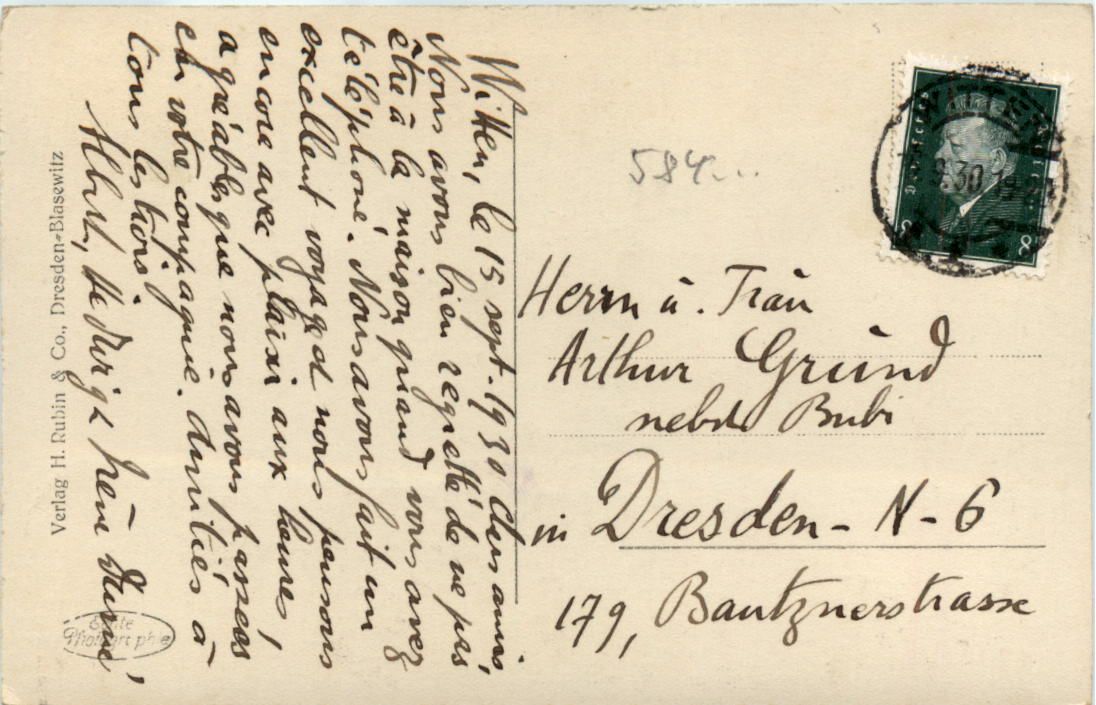 Witten, le 15 sept. 1930 Chers amis,
Nous avons bien regretté de ne pas
être à la maison quand vous avez
téléphoné. Nous avons fait un
excellent voyage et nous pensons
encore avec plaisir aux heures
agréables que nous avons passées
en votre compagnie. Amitiés à
tous les trois
Albert, Hedwig & Irène
Verlag H. Rubin & Co., Dresden-Blasewitz
Echte
Photographie
584...
WITTEN
8
8
Herrn u. Frau
Arthur Grund
nebst Bubi
in Dresden - N - 6
179, Bautznerstrasse